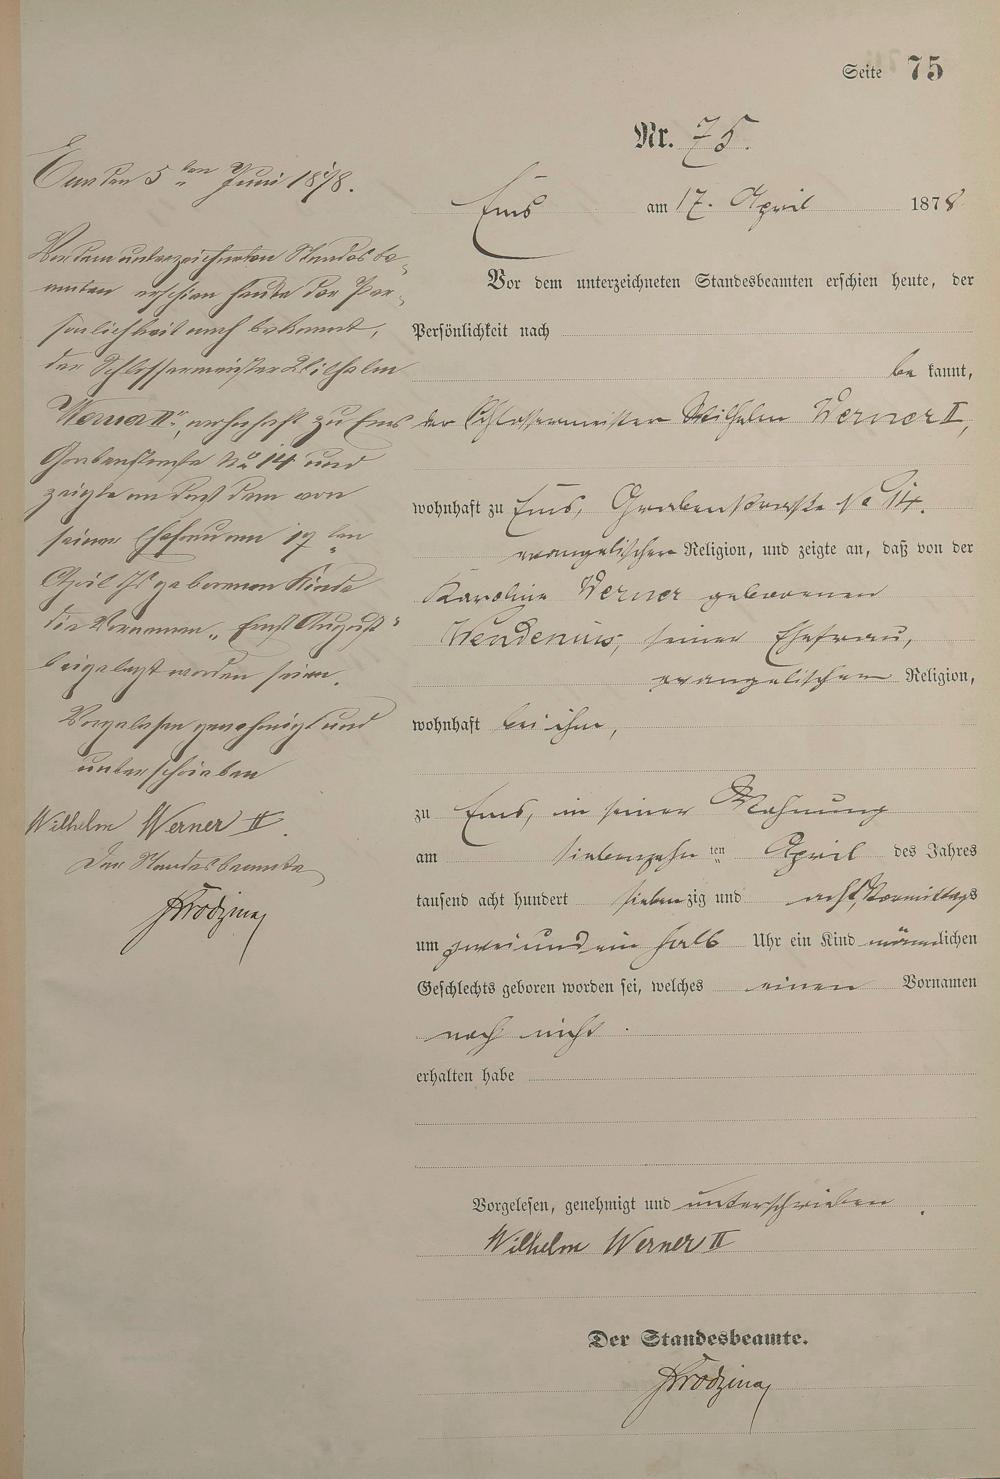 Seite 75
Nr. 75.
Ems am 17. April 1878
Vor dem unterzeichneten Standesbeamten erschien heute, der
Persönlichkeit nach
be kannt,
der Schlossermeister Wilhelm Werner II,
wohnhaft zu Ems, Grabenstraße No 14.
evangelischer Religion, und zeigte an, daß von der
Karoline Werner geborenen
Wendenius, seiner Ehefrau,
evangelischer Religion,
wohnhaft bei ihm,
zu Ems, in seiner Wohnung
am siebenzehn ten April des Jahres
tausend acht hundert siebenzig und acht, Vormittags
um zwei und ein halb Uhr ein Kind männlichen
Geschlechts geboren worden sei, welches einen Vornamen
noch nicht.
erhalten habe
Vorgelesen, genehmigt und unterschrieben.
Wilhelm Werner II
Der Standesbeamte.
Ems den 5ten Juni 1878.
Vor dem unterzeichneten Standesbe-
amten erschien heute der Per-
sönlichkeit nach bekannt,
der Schlossermeister Wilhelm
Werner II, wohnhaft zu Ems
Grabenstraße No 14 und
zeigte an daß dem von
seiner Ehefrau am 17ten
April geborenen Kinde
die Vornamen „Ernst August"
beigelegt worden seien.
Vorgelesen genehmigt und
unterschrieben
Wilhelm Werner II.
Der Standesbeamte